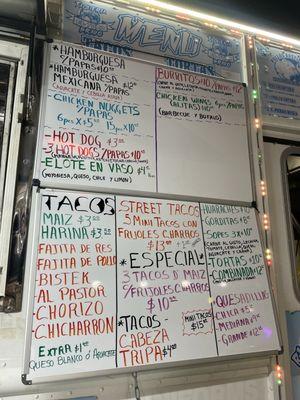 MENU
TACOS
* HAMBURGUESA
C/PAPAS $10
* HAMBURGUESA $12
MEXICANA C/PAPAS
(AGUACATE Y CEBOLLA ASADA)
- CHICKEN NUGGETS
C/PAPAS
6pcs $5 15pcs $10
- HOT DOG $3
- 3 HOT DOGS C/PAPAS $10
- ELOTE EN VASO $4
(MAYONESA, QUESO, CHILE Y LIMON)
BURRITOS $10
CHICKEN WINGS 6pcs
(ALITAS)
(BARBECUE Y BUFALO)
TACOS
MAIZ $3
HARINA $3
FAJITA DE RES
FAJITA DE POLLO
BISTEK
AL PASTOR
- CHORIZO
- CHICHARRON
EXTRA $1
QUESO BLANCO Ó AGUACATE
STREET TACOS
5 MINI TACOS CON
FRIJOLES CHARROS
$13
*ESPECIAL*
3 TACOS D' MAIZ
C/FRIJOLES CHARROS
$10
*TACOS*
CABEZA
TRIPA $4
MINI TACOS
$15
HUARACHES
GORDITAS $
SOPES 3 X $10
TORTAS $10
COMBINADA $12
QUESADILLAS
CHICA $5
MEDIANA $9
GRANDE $12